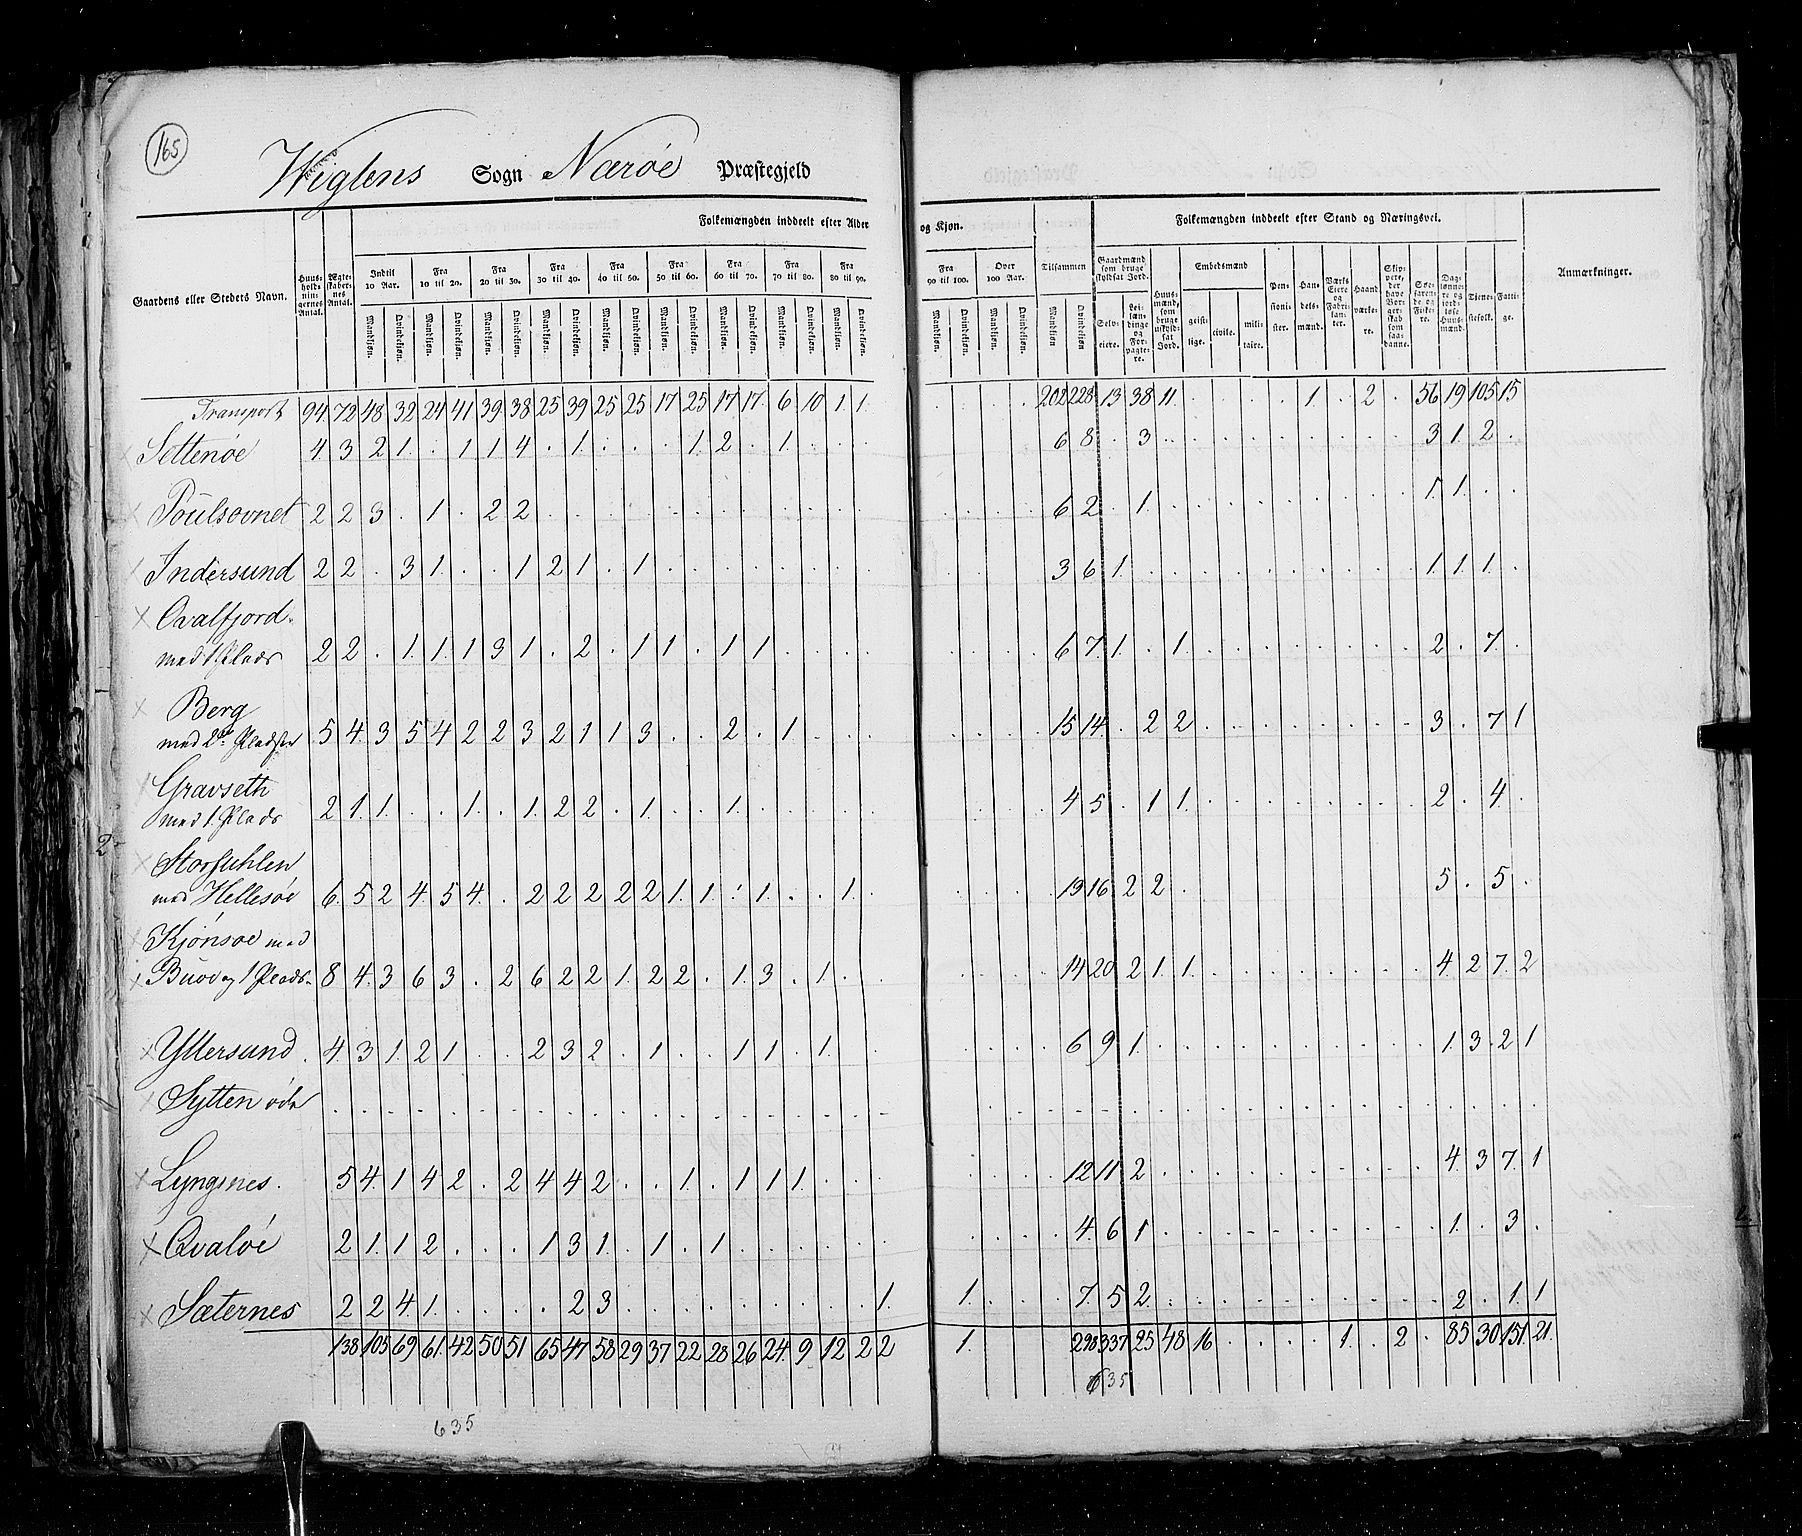 165
Wiglens Sogn Nærøe Præstegjeld
Folkemængden inddeelt efter Alder og Kjøn. Folkemængden inddeelt efter Stand og Næringsvei.
Gaardens eller Stedets Navn. Huusholdningernes Antal. Ægteskabernes Antal. Indtil 10 Aar. Fra 10 til 20. Fra 20 til 30. Fra 30 til 40. Fra 40 til 50. Fra 50 til 60. Fra 60 til 70. Fra 70 til 80. Fra 80 til 90. Fra 90 til 100. Over 100 Aar. Tilsammen Gaardmænd som bruge skyldsat Jord. Huusmænd, som bruge uskyldsat Jord. Embedsmænd Pensionister. Handelsmænd. Værks Eiere og Fabrikanter. Haandværkere. Skippere, der have Borgerskab som saadanne. Søefarende og Fiskere. Daglønnere og jordløse Huusmænd. Tjenestefolk. Fattige. Anmærkninger.
Mandkjøn. Qvindekjøn. Mandkjøn. Qvindekjøn. Mandkjøn. Qvindekjøn. Mandkjøn. Qvindekjøn. Mandkjøn. Qvindekjøn. Mandkjøn. Qvindekjøn. Mandkjøn. Qvindekjøn. Mandkjøn. Qvindekjøn. Mandkjøn. Qvindekjøn. Mandkjøn. Qvindekjøn. Mandkjøn. Qvindekjøn. Mandkjøn Qvindekjøn. Selveiere. Leilændinge og Forpagtere. geistlige. civile. militaire.
Transport 94 72 48 32 24 41 39 38 25 39 25 25 17 25 17 17 6 10 1 1 . . . . 202 228 13 38 11 . . . . 1 . 2 . 56 19 105 15
Settenøe 4 3 2 1 . 1 1 4 . 1 . . . 1 2 . 1 . . . . . . . 6 8 . 3 . . . . . . . . . 3 1 2 .
Poulsovnet 2 2 3 . 1 . 2 2 . . . . . . . . . . . . . . . . 6 2 . 1 . . . . . . . . . 1 1 . .
Indersund 2 2 . 3 1 . . 1 2 1 . 1 . . . . . . . . . . . . 3 6 1 . . . . . . . . . . 1 1 1 .
Qvalfjord
med 1 Plads 2 2 . 1 1 1 3 1 . 2 . 1 1 . 1 1 . . . . . . . . 6 7 1 . 1 . . . . . . . . 2 . 7 .
Berg
med 2de Pladser 5 4 3 5 4 2 2 3 2 1 1 3 . . 2 . 1 . . . . . . . 15 14 . 2 2 . . . . . . . . 3 . 7 1
Gravseth
med 1 Plads 2 1 1 . . 1 . 1 2 2 . 1 . . 1 . . . . . . . . . 4 5 . 1 1 . . . . . . . . 2 . 4 .
2
med Hellesøe 6 5 2 4 5 4 . 2 2 2 2 2 1 1 . 1 . . 1 . . . . . 13 16 2 2 . 5 . 5 .
Kjønsøe med
Buøe og 1 Plads 8 4 3 6 3 . 2 6 2 2 1 2 2 . 1 3 . 1 . . . . . 14 20 2 1 1 . . . . . . . . 4 2 7 2
Yttersund 4 3 1 2 1 . . 2 3 2 . 1 . . 1 1 . 1 . . . . . . 6 9 1 . . . . . . . . . . 1 3 2 1
Sytten øde . . . . . . . . . . . . . . . . . . . .
Lyngsnes 5 4 1 4 2 . 2 4 4 2 . . 1 . 1 1 1 . . . . . . . 12 11 2 . . . . . . . . . . 4 3 7 1
Qvaløe 2 1 1 2 . . . 1 3 1 . 1 . 1 . . . . . . . . . . 4 6 1 . . . . . . . . . . 1 . 3 .
Sæternes 2 2 4 1 . . . . 2 3 . . . . . . . . . 1 1 . . . 7 5 2 . . . . . . . . . . 2 . 1 1
138 105 69 61 42 50 51 65 47 58 29 37 22 28 26 24 9 12 2 2 1 298 337 25 48 16 . . . . 1 . 2 . 85 30 151 21
635
635